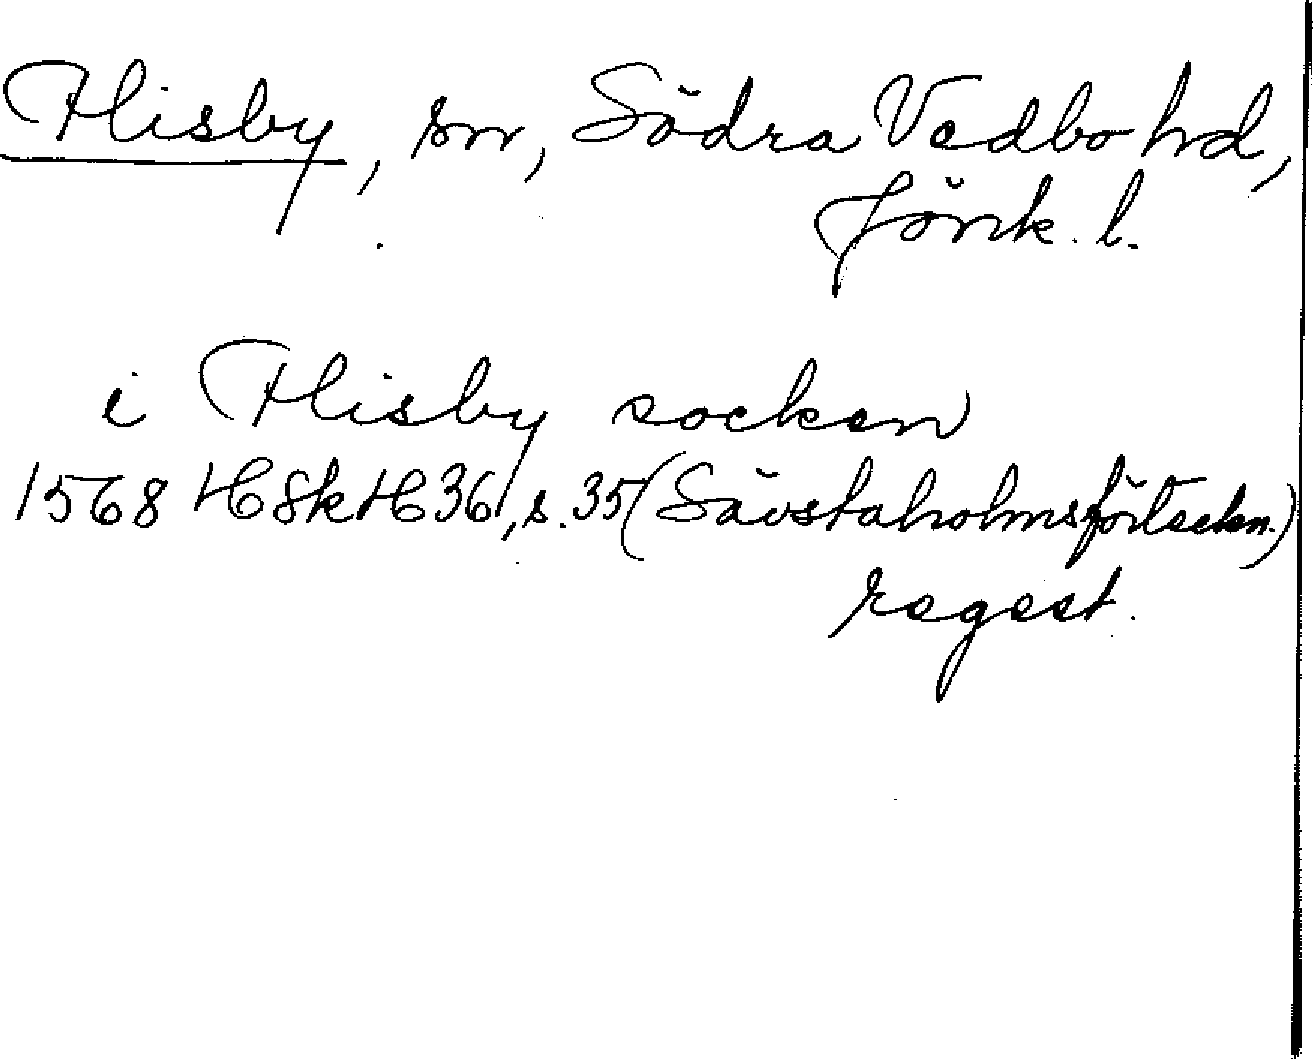 Flisby, sn, Södra Vedbo hd,
Jönk. l.
i Flisby socken
1568 HSkH 36, s. 35 (Sävstaholmsförteckn.)
regest.